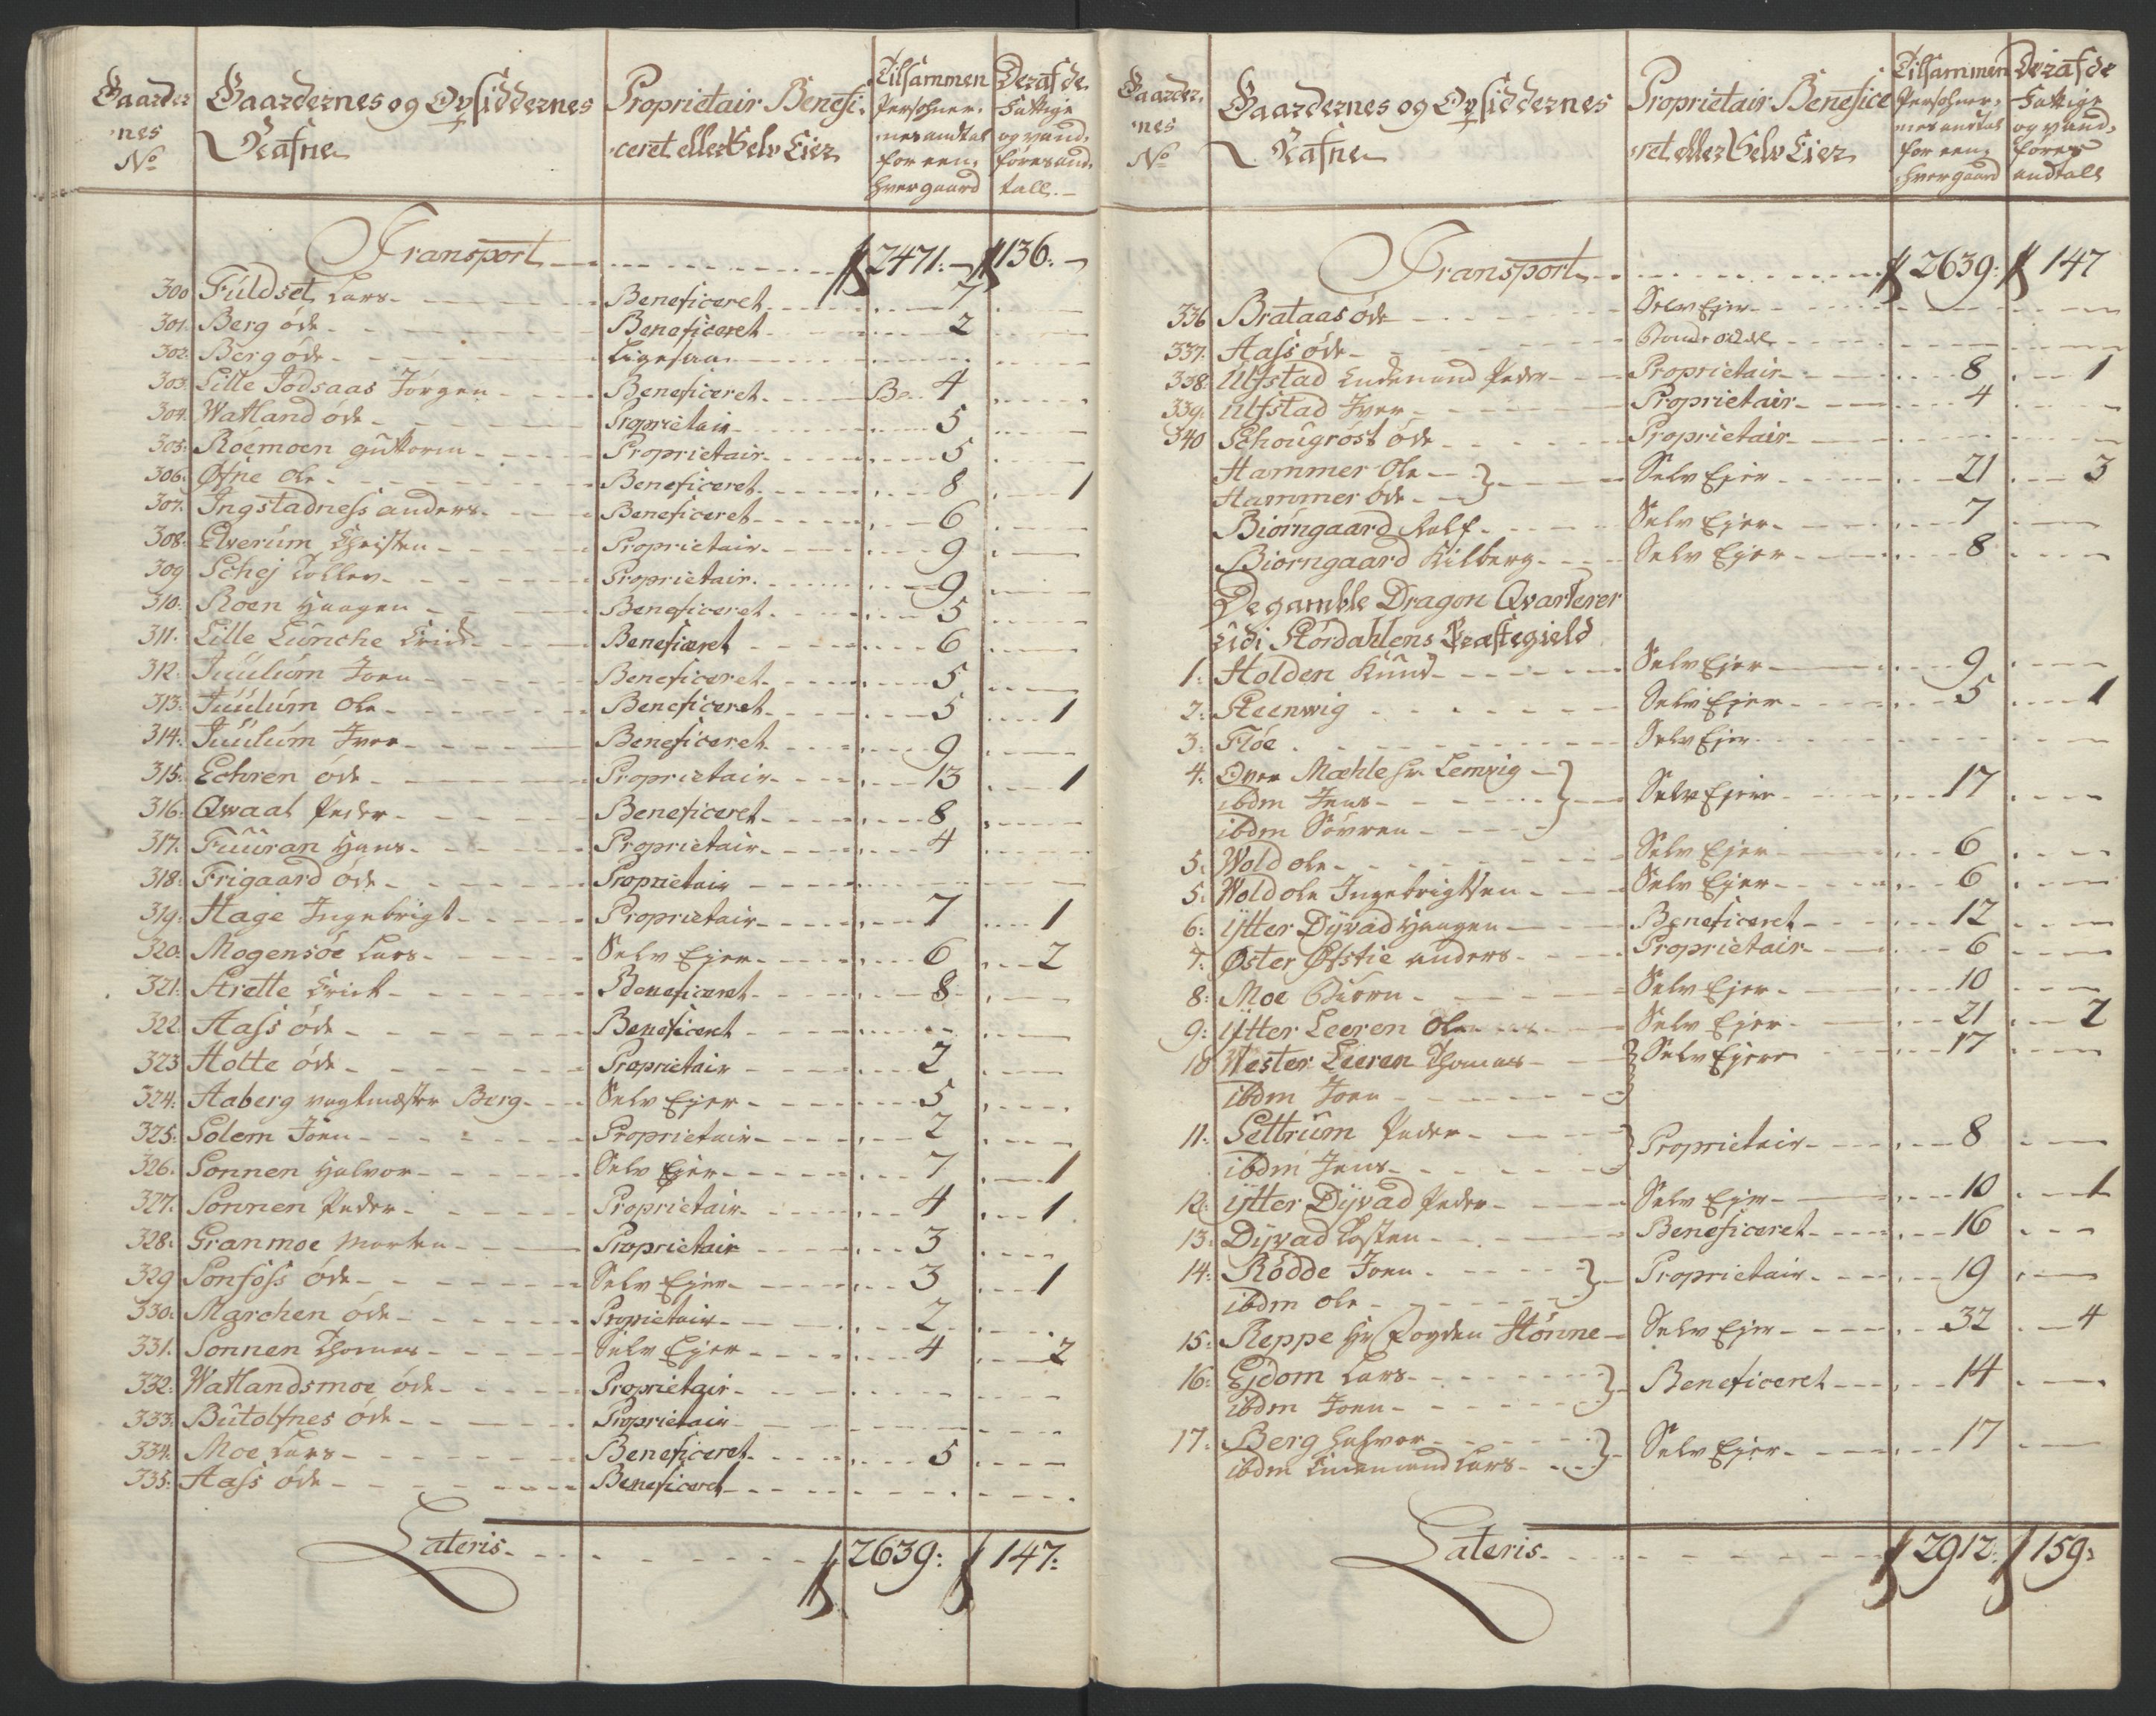 Gaarder
nes
No
Gaardernes og Opsiddernes
Nafne
Proprietair Benefi-
ceret eller Selv Eier
Tilsammen
Persohner-
nes andtal
for een
hver gaard
Deraf de
Fattige
og vand-
føres and-
tall.
Transport 2471. 136.
300 Fuldset Lars Beneficeret 7
301. Berg øde Beneficeret 2
302. Berg øde Ligesaa
303. Lille Jødsaas Jørgen Beneficeret 4
304. Watland øde Proprietair 5
305. Roemoen guttorm Proprietair 5
306. Øfne Ole Beneficeret 8 1
307. Ingstadness anders Beneficeret 6
308. Elverum Christen Proprietair 9
309 Schej Tollev Proprietair 9
310. Roen Haagen Beneficeret 5
311. Lille Lunche Erich Beneficeret 6
312. Juulum Joen Beneficeret 5
313. Juulum Ole Beneficeret 5 1
314. Juulum Iver Beneficeret 9
315. Echren øde Proprietair 13 1
316. Qwaal Peder Beneficeret 8
317. Fuuran Hans Proprietair 4
318. Frigaard øde Proprietair
319. Hage Ingebrigt Proprietair 7 1
320. Mogensøe Lars Selv Ejer 6 2
321. Strette Erich Beneficeret 8
322 Aass øde Beneficeret
323 Holte øde Proprietair 2
324. Aaberg vagtmæster Berg Selv Ejer 5
325. Solem Joen Proprietair 2
326. Sonnen Halvor Selv Ejer 7 1
327. Sonnen Peder Proprietair 4 1
328. Granmoe Morten Proprietair 3
329 Sonfoss øde Selv Ejer 3 1
330. Marchen øde Proprietair 2
331. Sonnen Thomas Selv Ejer 4 2
332. Watlandsmoe øde Proprietair
333. Butolfnes øde Proprietair
334. Moe Lars Beneficeret 5
335. Aass øde Beneficeret
Lateris 2639: 147:
Gaarder-
nes
No
Gaardernes og Opsiddernes
Nafne
Proprietair Benefice
ret eller Selv Eier
Tilsammen
Persohner-
nes andtal
for een
hver gaard
Deraf de
Fattige
og vand-
føres
andtall
Transport 2639: 147
336 Brataas øde Selv Ejer
337. Aass øde
338. Ulfstad Peder Proprietair 8 1
339. Ulfstad Iver Proprietair 4
340 Schougrøst øde Proprietair
Hammer Ole Selv Ejer 21 3
Hammer øde
Biørngaard Rolf Selv Ejer 7
Biørngaard Kilberg Selv Ejer 8
De gamble Dragon Qvarterer
udi Størdahlens Præstegield
1. Holden Knud Selv Ejer 9
2. Steenwig Selv Ejer 5 1
3. Fløe Selv Ejer
4. Over Mæhle Hr Lemvig
ibdm Jens Selv Ejere 17
ibdm Søvren
5. Wold ole Selv Ejer 6
5. Wold ole Ingebrigtsen Selv Ejer 6
6. ÿtter Dÿvad Haagen Beneficeret 12
7. Øster Øfstie anders Proprietair 6
8. Moe Biørn Selv Ejer 10
9. ÿtter Leeren Ole Selv Ejer 21 2
10 Wester Leeren Thomas Selv Ejere 17
ibdm Joen
11. Settrum Peder Proprietair 8
ibdm Jens
12. ÿtter Dÿvad Peder Selv Ejer 10 1
13. Dÿvad Tosten Beneficeret 16
14. Rødde Joen Proprietair 19
ibdm ole
15. Reppe Hr fogden Hønne Selv Ejer 32 4
16. Ejdom Lars Beneficeret 14
ibdm Joen
17. Berg Halvor Selv Ejer 17
ibdm Lars
Lateris 2912: 159: